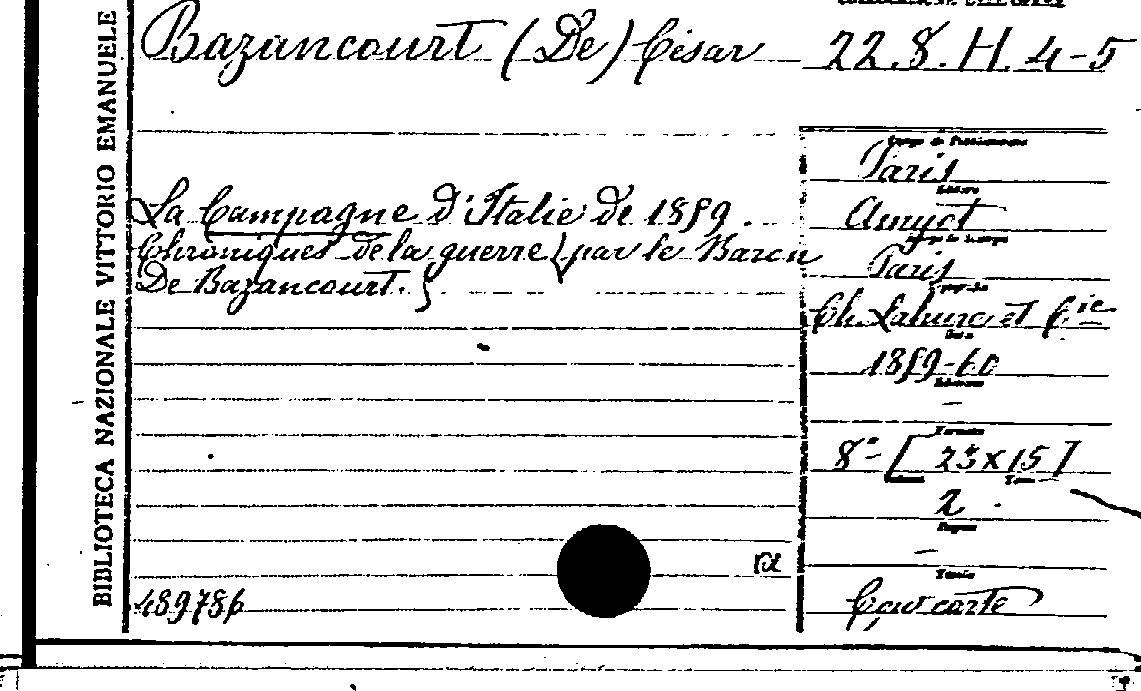 BIBLIOTECA NAZIONALE VITTORIO EMANUELE
Bazancourt (De) César
22.8.H.4-5
La Campagne d'Italie de 1859.
Chroniques de la guerre par le Baron
De Bazancourt.
Paris
Amyot
Paris
Ch. Lahure et Cie
1859-60
8° [23x15]
2
carte
489786